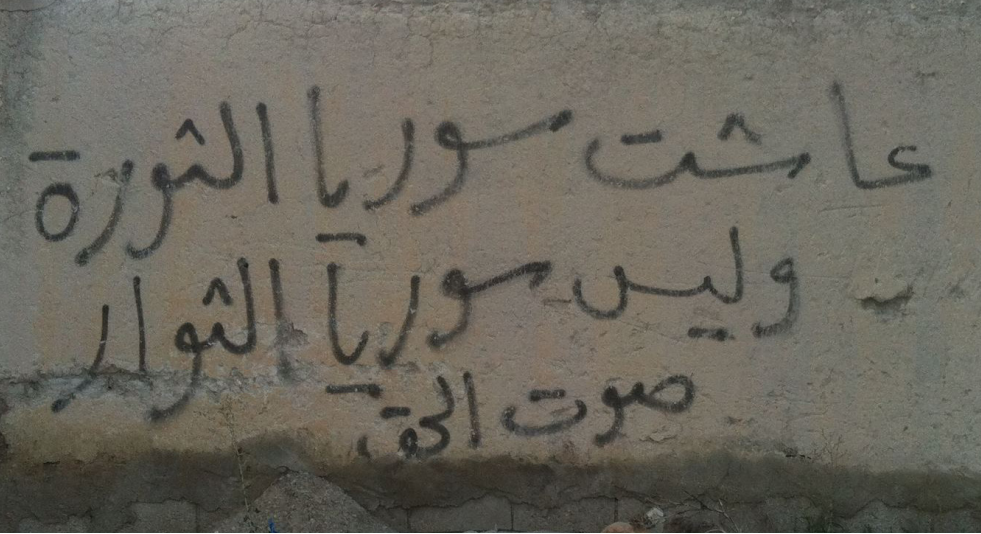 عاشت سوريا الثورة
وليس سوريا الثوار
صوت الحق